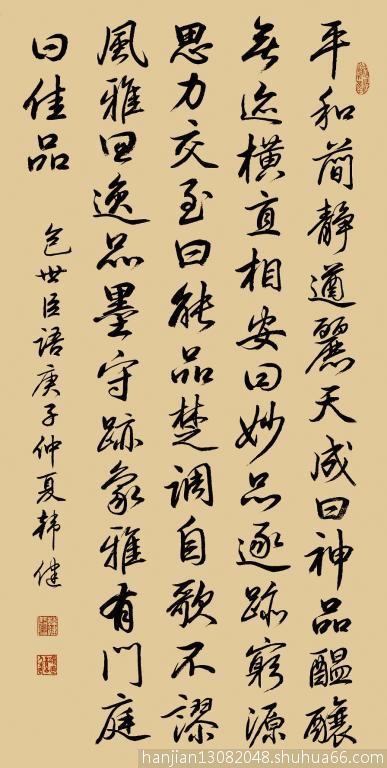 平和簡静遒麗天成曰神品醖釀
無迹横直相安曰妙品逐跡窮源
思力交至曰能品楚調自歌不謬
風雅曰逸品墨守跡象雅有門庭
曰佳品
包世臣語庚子仲夏韩健
hanjian13082048.shuhua66.com